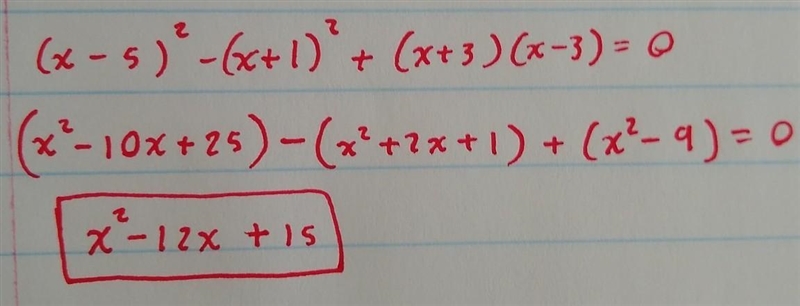 (x - 5)² - (x + 1)² + (x + 3)(x - 3) = 0
(x² - 10x + 25) - (x² + 2x + 1) + (x² - 9) = 0
x² - 12x + 15